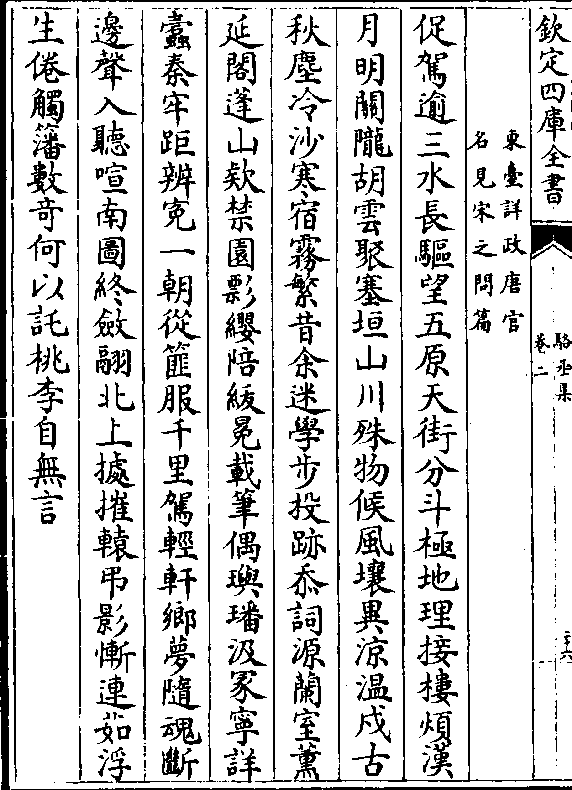 欽定四庫全書
駱丞集
卷二
東臺詳政唐官
名見宋之問篇
促駕逾三水長驅望五原天街分斗極地理接樓煩漢
月明關隴胡雲聚塞垣山川殊物候風壤異涼温戍古
秋塵冷沙寒宿霧繁昔余迷學步投跡忝詞源蘭室薰
延閣蓬山欵禁園彯纓陪綬冕載筆偶璵璠汲冢寧詳
蠧秦牢距辨寃一朝從篚服千里駕輕軒鄉夢隨魂斷
邊聲入聽喧南圖終斂翮北上攄摧轅弔影慚連茹浮
生倦觸籓數竒何以託桃李自無言